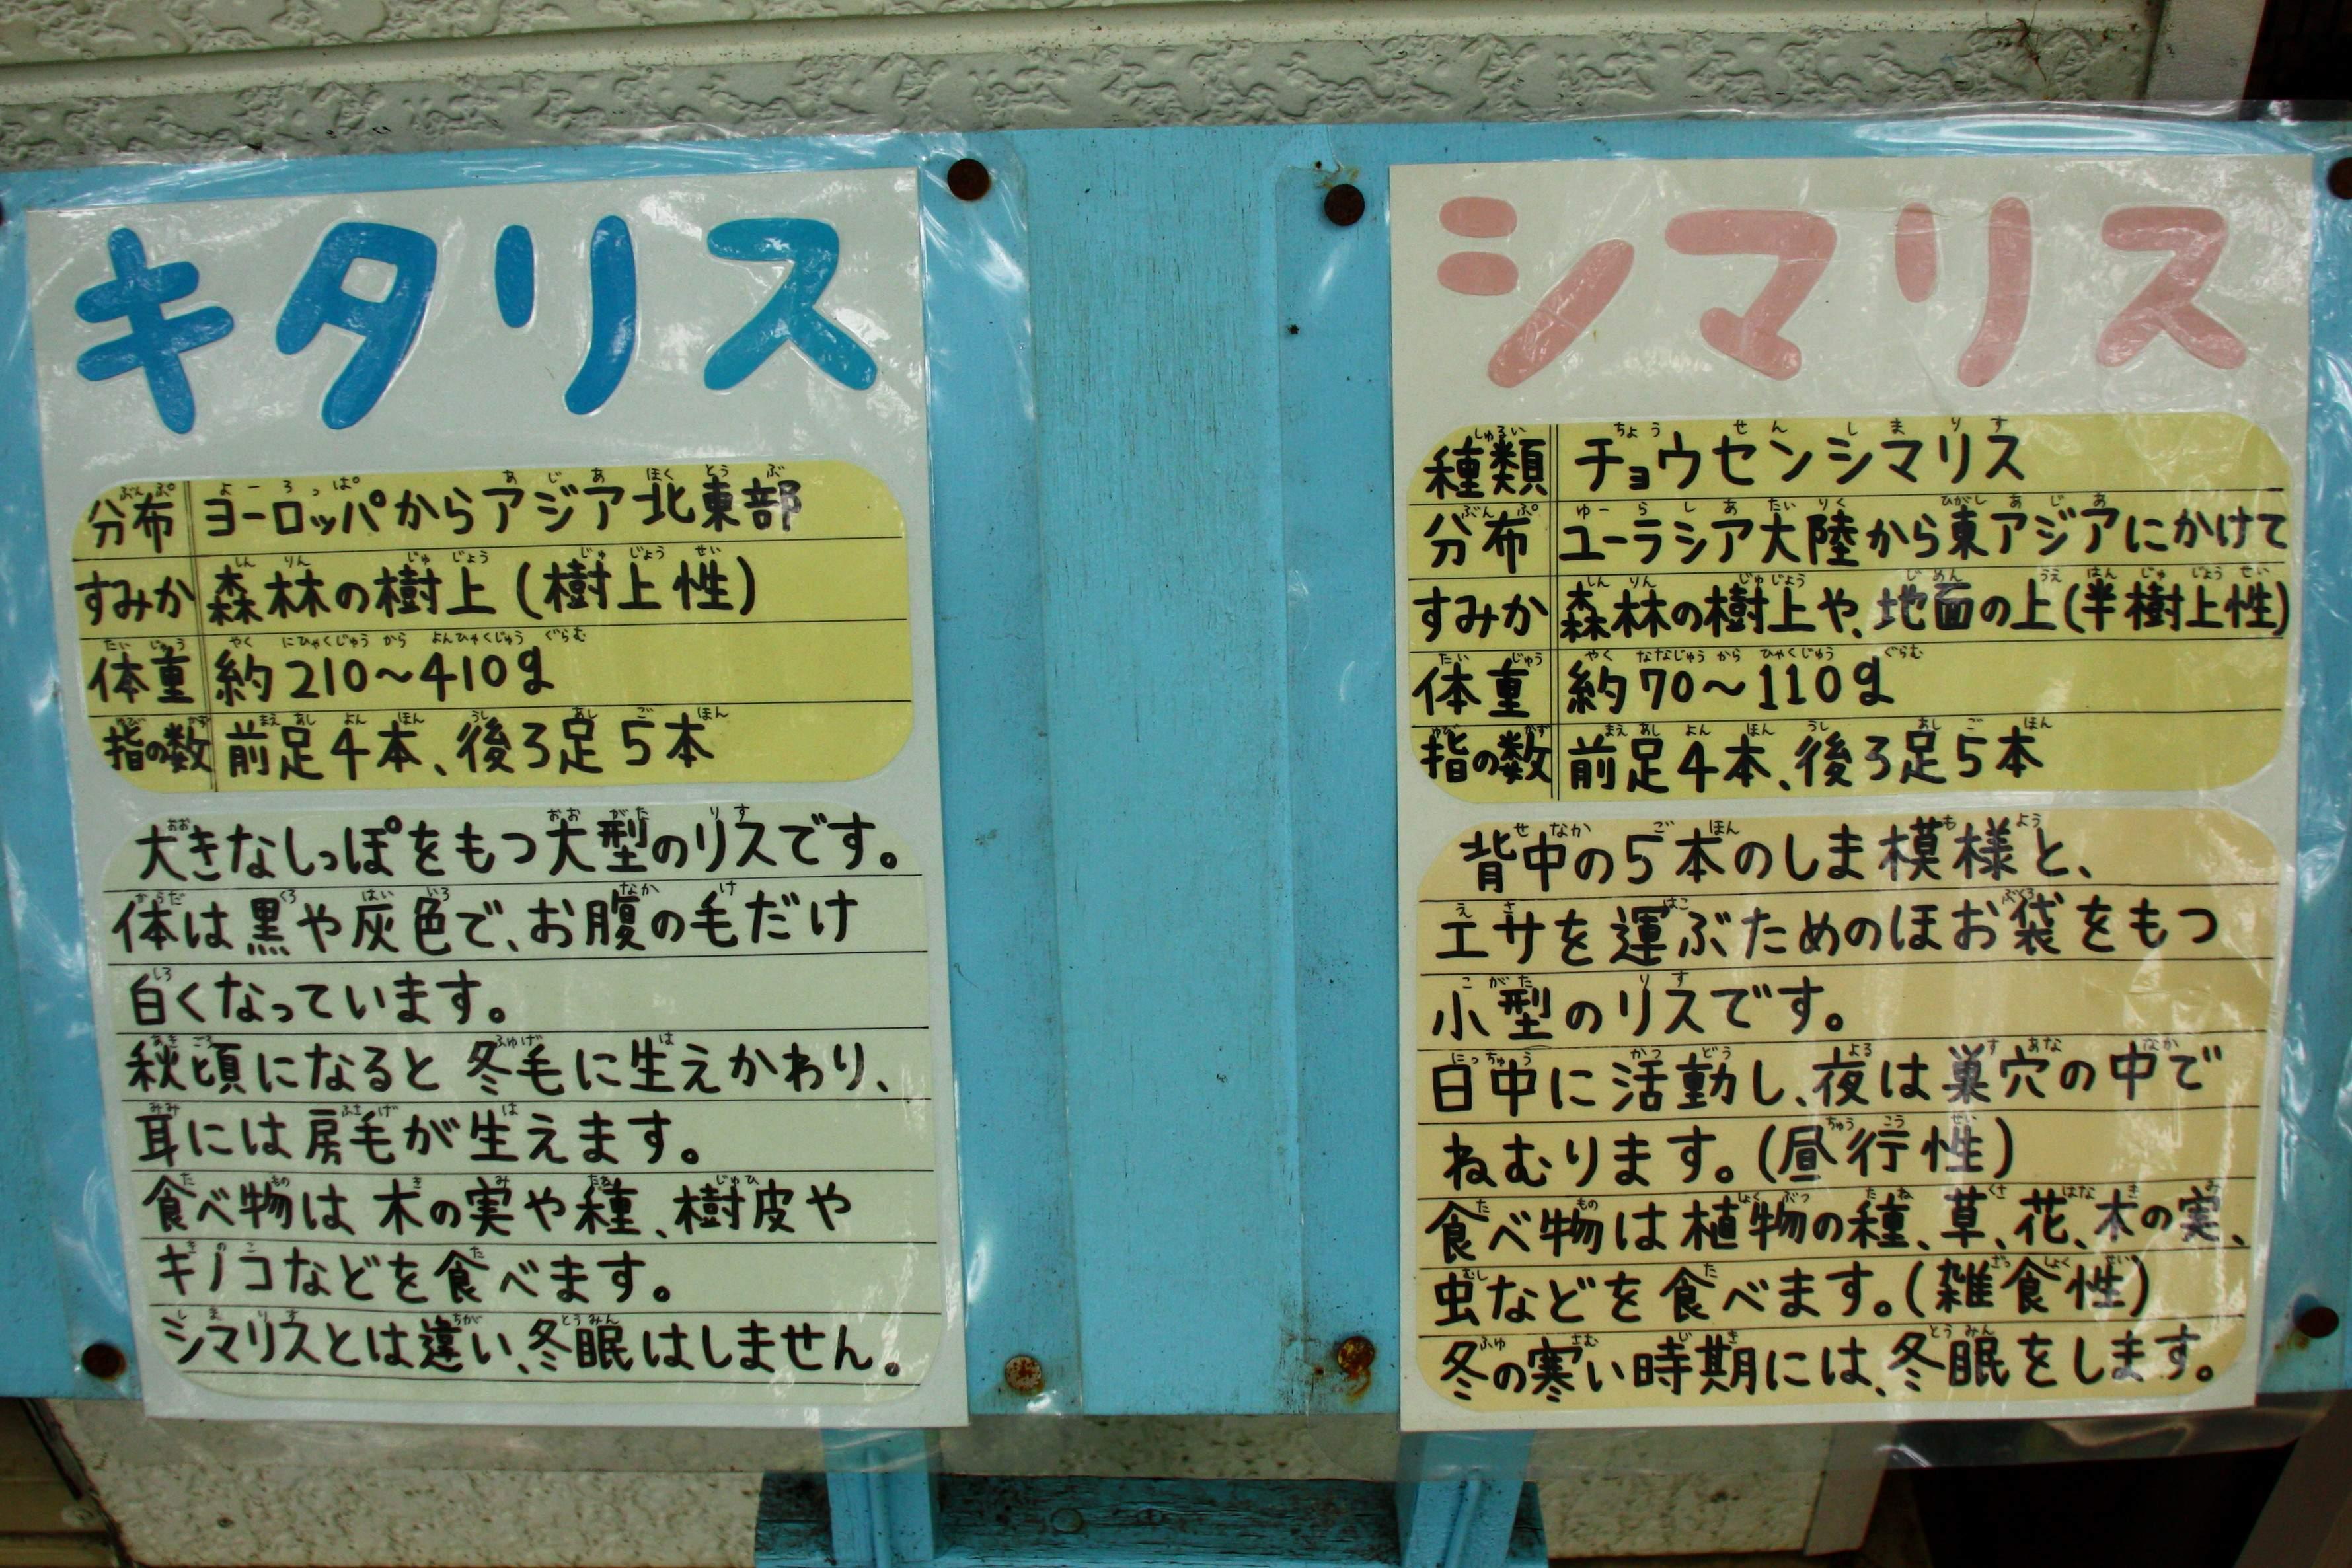 キタリス
分布 ヨーロッパからアジア北東部
すみか 森林の樹上(樹上性)
体重 約210〜410g
指の数 前足4本、後ろ足5本
大きなしっぽをもつ大型のリスです。
体は黒や灰色で、お腹の毛だけ
白くなっています。
秋頃になると冬毛に生えかわり、
耳には房毛が生えます。
食べ物は木の実や種、樹皮や
キノコなどを食べます。
シマリスとは違い、冬眠はしません。
シマリス
種類 チョウセンシマリス
分布 ユーラシア大陸から東アジアにかけて
すみか 森林の樹上や、地面の上(半樹上性)
体重 約70〜110g
指の数 前足4本、後ろ足5本
背中の5本のしま模様と、
エサを運ぶためのほお袋をもつ
小型のリスです。
日中に活動し、夜は巣穴の中で
ねむります。(昼行性)
食べ物は植物の種、草、花、木の実、
虫などを食べます。(雑食性)
冬の寒い時期には、冬眠をします。